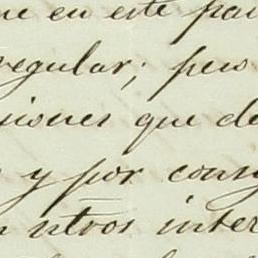 ne en este pai
regular; pero
siones que de
y por cons
n ntros inter